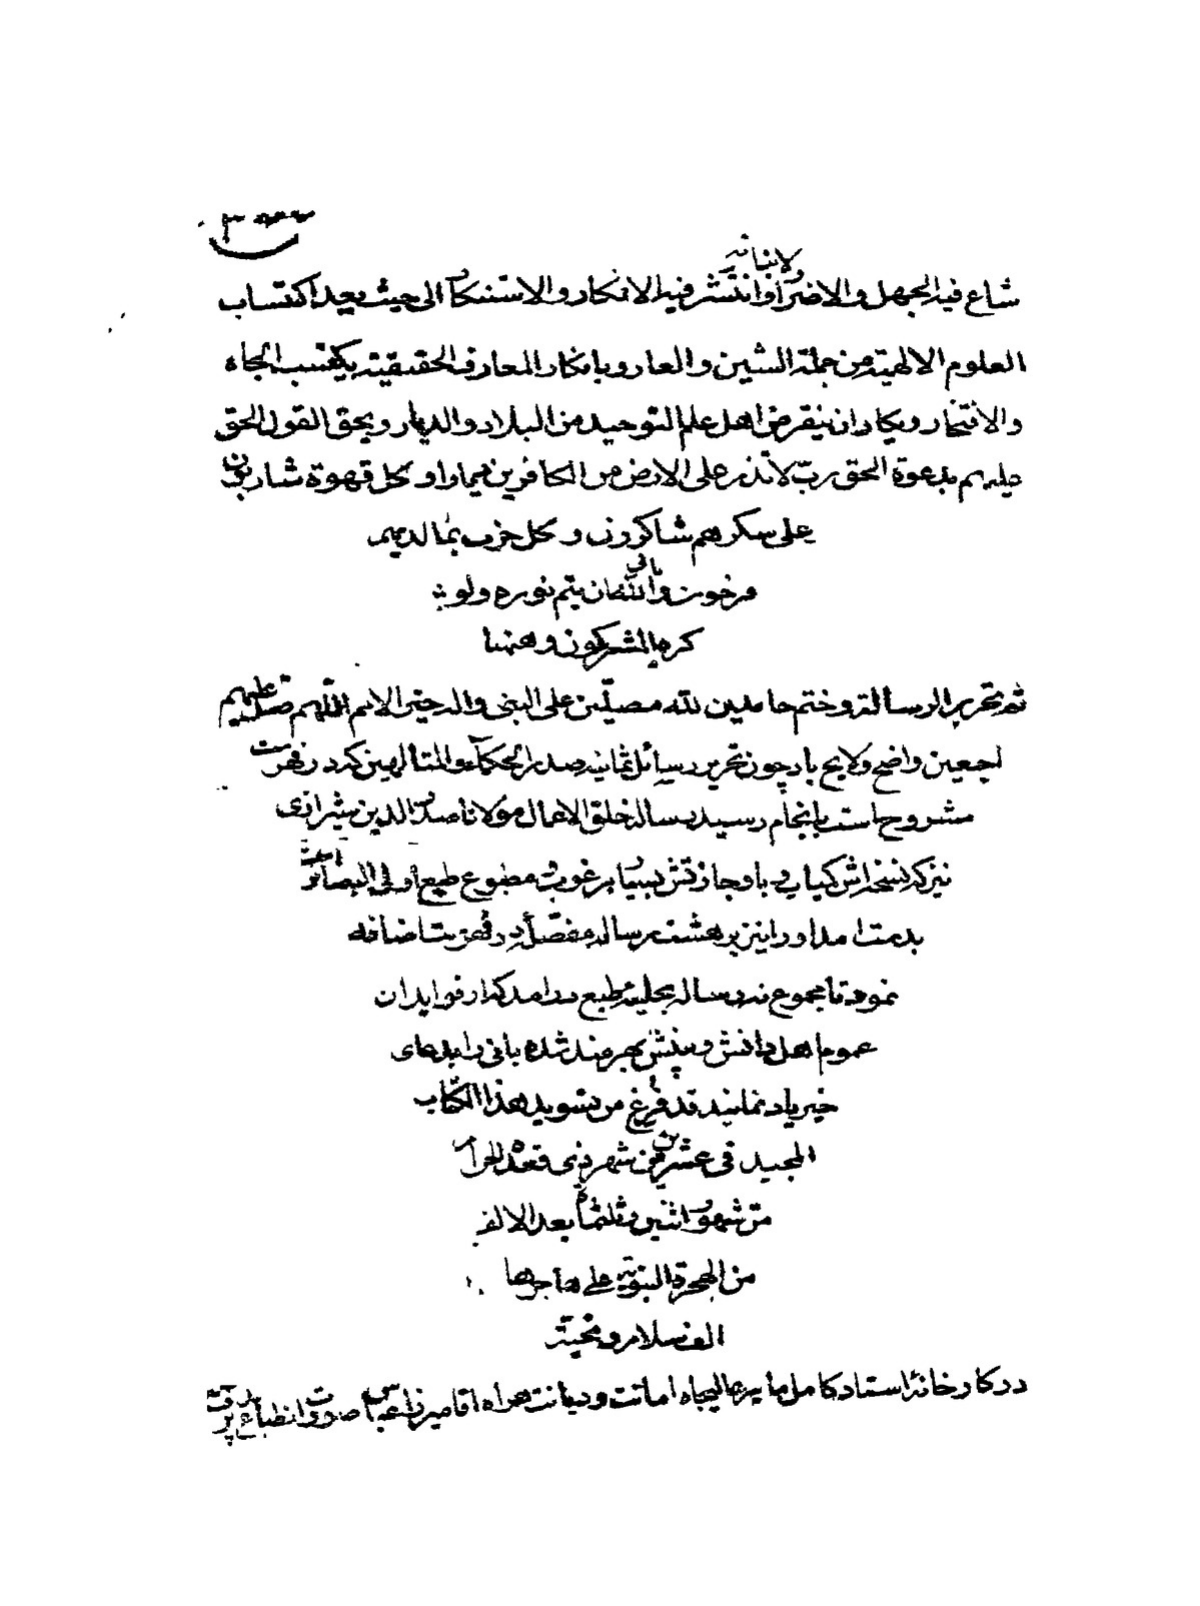 ولا نباته
شاع فيه الجهل والاضرار وانتشر فيه الانكار والاستنكار الى حيث يعد اكتساب
العلوم الالهية من جملة الشين والعار وبانكار المعارف الحقيقية يكتسب الجاه
والافتخار ويكاد ان ينقرض اهل علم التوحيد من البلاد والديار ويحق القول الحق
عليهم بدعوة الحق رب لا تذر على الارض من الكافرين ديارا وكل قهوة شاربون
على سكرهم شاكرون وكل حزب بما لديهم
فرحون والله يابى ان يتم نوره ولو
كره المشركون وههنا
تم تحرير الرسالة وختم حامدين لله مصلين على النبى واله خير الامم اللهم صل عليهم
اجمعين واضح ولايح باد چون تحرير رسائل ثمانيه صدر الحكماء والمتألهين كه در فهرست
مشروح است بانجام رسيد رساله خلق الاعمال مولانا صدر الدين شيرازى
نيز كه نسخه اش كمياب وبا وجازتش بسيار مرغوب ومطبوع طبع اولى البصائر است
بدست امد اورا نيز بر هشت رساله مفصله در فهرست اضافه
نموده تا مجموع نه رساله بحليه طبع درامد كه از فوايد ان
عموم اهل دانش وبينش بهره مند شده بانى را بدعاى
خير ياد نمايند قد فرغ من تسويد هذا الكتاب
المجيد فى عشرين من شهر ذى قعدة الحرام
من شهور اثنين وثلثمائة بعد الالف
من الهجرة النبوية على هاجرها
الف سلام وتحية
در كارخانه استاد كامل مايه عاليجاه امانت وديانت همراه اقا ميرزا عباس صورت انطباع پذيرفت